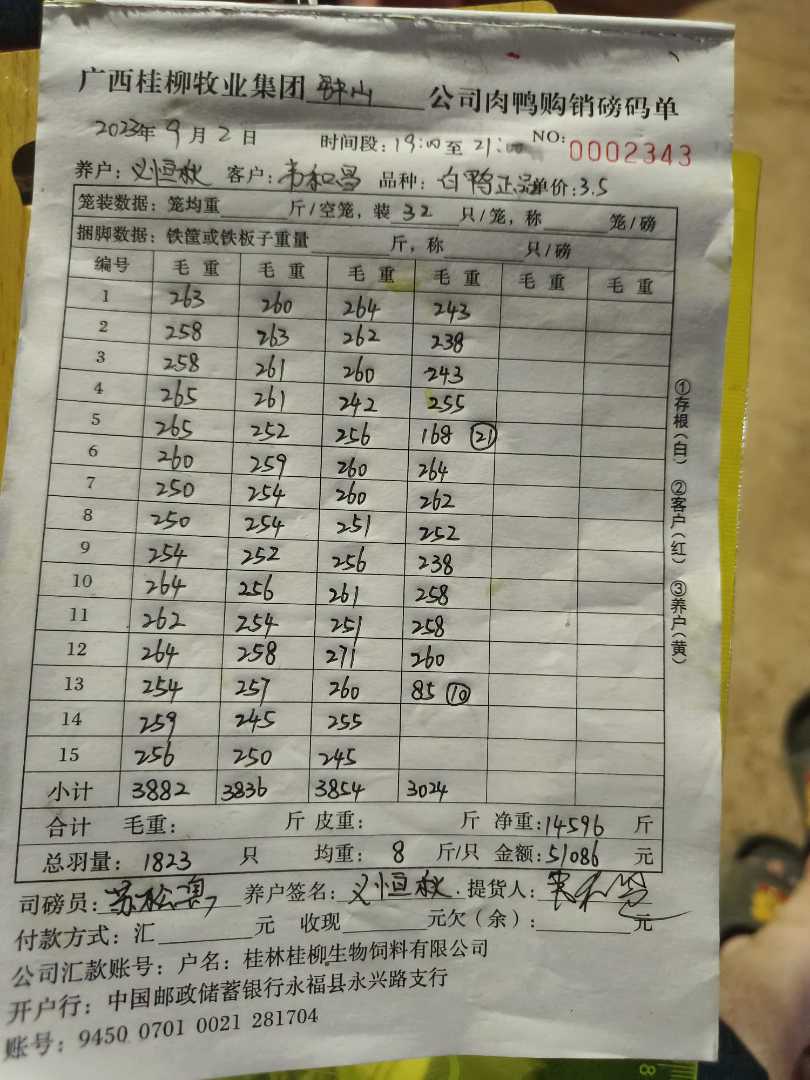 广西桂柳牧业集团钟山公司肉鸭购销磅码单
2023年9月2日 时间段:19:00至21:00 NO:0002343
养户:义恒秋 客户:韦和昌 品种:白鸭正品单价:3.5
笼装数据:笼均重 斤/空笼,装32只/笼,称 笼/磅
捆脚数据:铁筐或铁板子重量 斤,称 只/磅
编号 毛重 毛重 毛重 毛重 毛重 毛重
1 263 260 264 243
2 258 263 262 238
3 258 261 260 243
4 265 261 242 255
5 265 252 256 168 21
6 260 259 260 264
7 250 254 260 262
8 250 254 251 252
9 254 252 256 238
10 264 256 261 258
11 262 254 251 258
12 264 258 271 260
13 254 257 260 85 10
14 259 245 255
15 256 250 245
小计 3882 3836 3854 3024
合计 毛重: 斤 皮重: 斤 净重:14596 斤
总羽量:1823 只 均重:8 斤/只 金额:51086 元
司磅员: 养户签名:义恒秋 提货人:
付款方式:汇 元 收现 元欠(余): 元
公司汇款账号:户名:桂林桂柳生物饲料有限公司
开户行:中国邮政储蓄银行永福县永兴路支行
账号:9450 0701 0021 281704
①存根(白) ②客户(红) ③养户(黄)